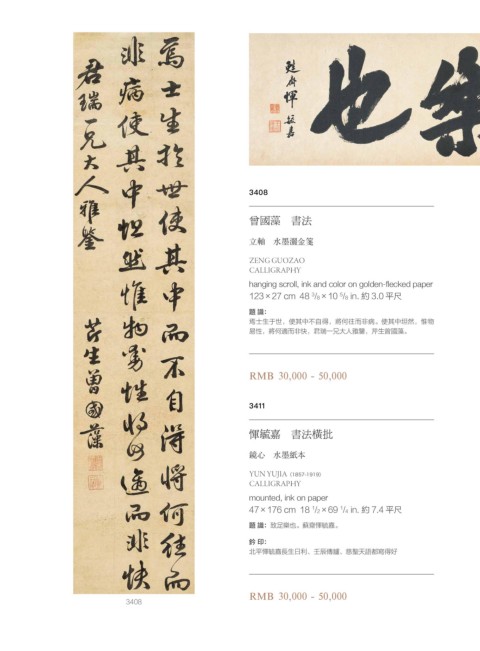 焉士生於世使其中而不自得將何往而
非病使其中坦然惟物易性將何適而非快
君瑞一兄大人雅鑒
芹生曾國藻
3408
樂也
惲毓嘉
3408
曾國藻 書法
立軸 水墨灑金箋
ZENG GUOZAO
CALLIGRAPHY
hanging scroll, ink and color on golden-flecked paper
123 × 27 cm 48 3/8 × 10 5/8 in. 約 3.0 平尺
題識：
焉士生于世，使其中不自得，將何往而非病。使其中坦然，惟物
易性，將何適而非快，君瑞一兄大人雅鑒，芹生曾國藻。
RMB 30,000 - 50,000
3411
惲毓嘉 書法橫批
鏡心 水墨紙本
YUN YUJIA (1857-1919)
CALLIGRAPHY
mounted, ink on paper
47 × 176 cm 18 1/2 × 69 1/4 in. 約 7.4 平尺
題識：致足樂也。蘇齋惲毓嘉。
鈐印：
北平惲毓嘉長生日利、壬辰傳臚、慈聖天語都寫得好
RMB 30,000 - 50,000